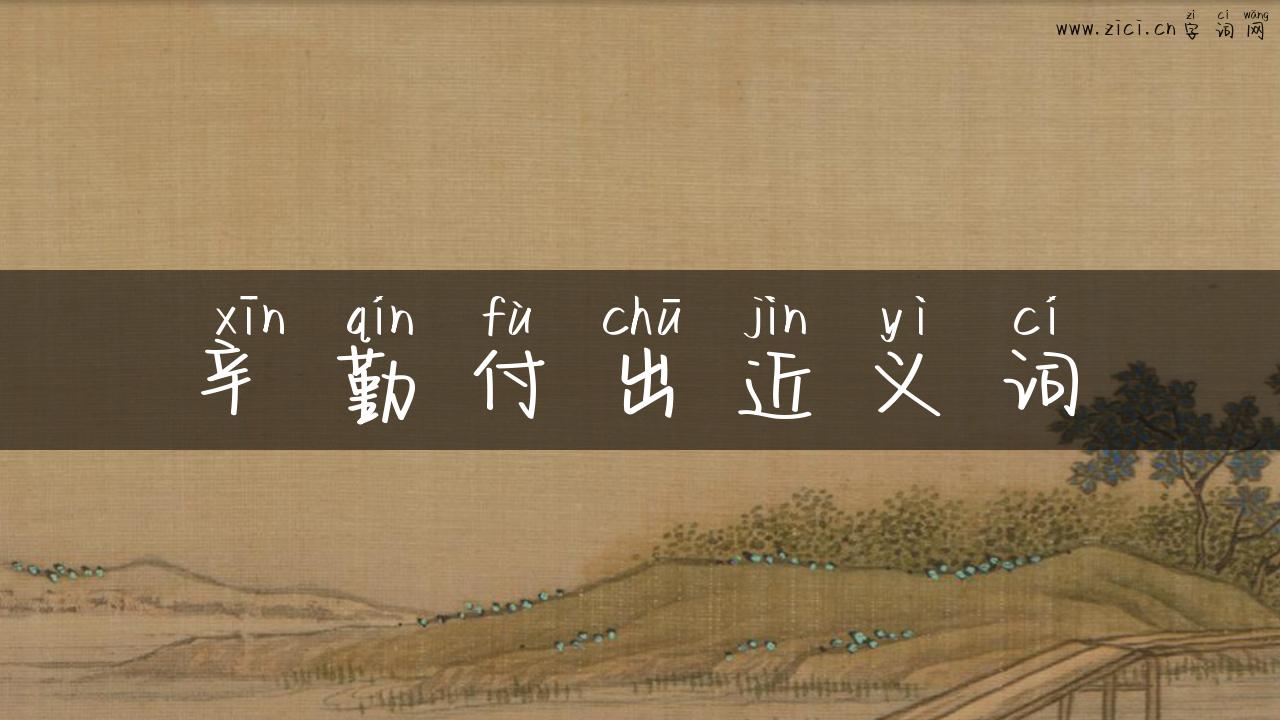 zì cí wǎng
www.zici.cn字词网
xīn qín fù chū jìn yì cí
辛勤付出近义词